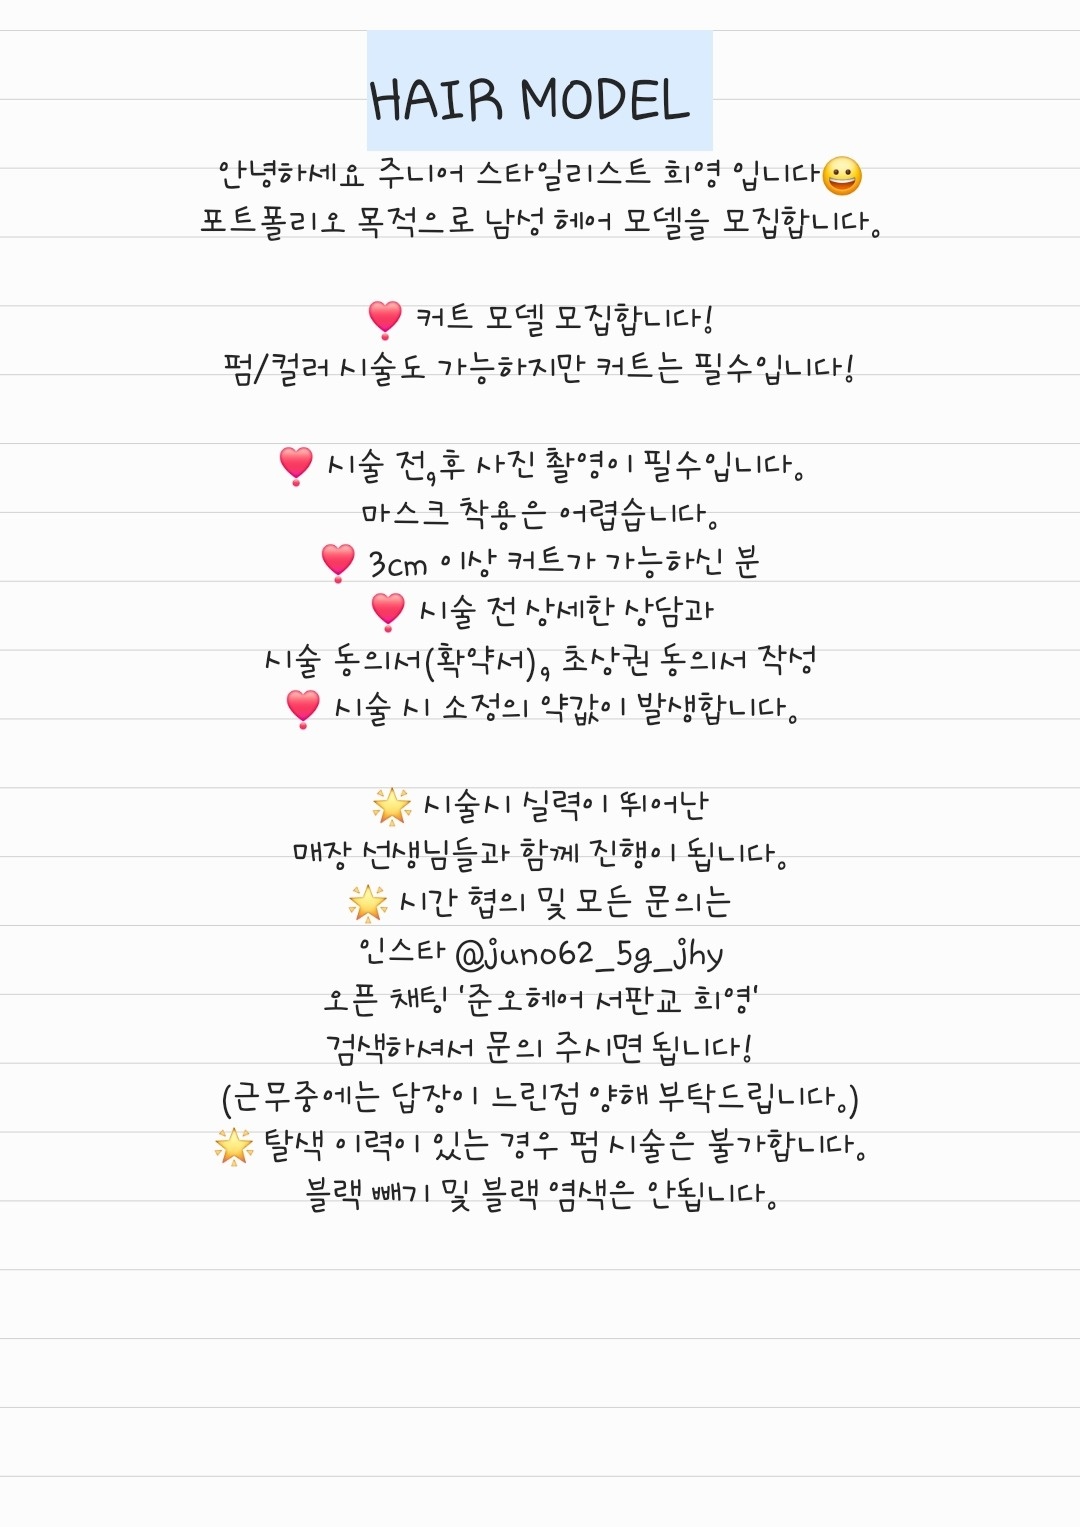 HAIR MODEL
안녕하세요 주니어 스타일리스트 희영 입니다😀
포트폴리오 목적으로 남성 헤어 모델을 모집합니다.
❣️ 커트 모델 모집합니다!
펌/컬러 시술도 가능하지만 커트는 필수입니다!
❣️ 시술 전,후 사진 촬영이 필수입니다.
마스크 착용은 어렵습니다.
❣️ 3cm 이상 커트가 가능하신 분
❣️ 시술 전 상세한 상담과
시술 동의서(확약서), 초상권 동의서 작성
❣️ 시술 시 소정의 약값이 발생합니다.
🌟 시술시 실력이 뛰어난
매장 선생님들과 함께 진행이 됩니다.
🌟 시간 협의 및 모든 문의는
인스타 @juno62_5g_jhy
오픈 채팅 '준오헤어 서판교 희영'
검색하셔서 문의 주시면 됩니다!
(근무중에는 답장이 느린점 양해 부탁드립니다.)
🌟 탈색 이력이 있는 경우 펌 시술은 불가합니다.
블랙 빼기 및 블랙 염색은 안됩니다.